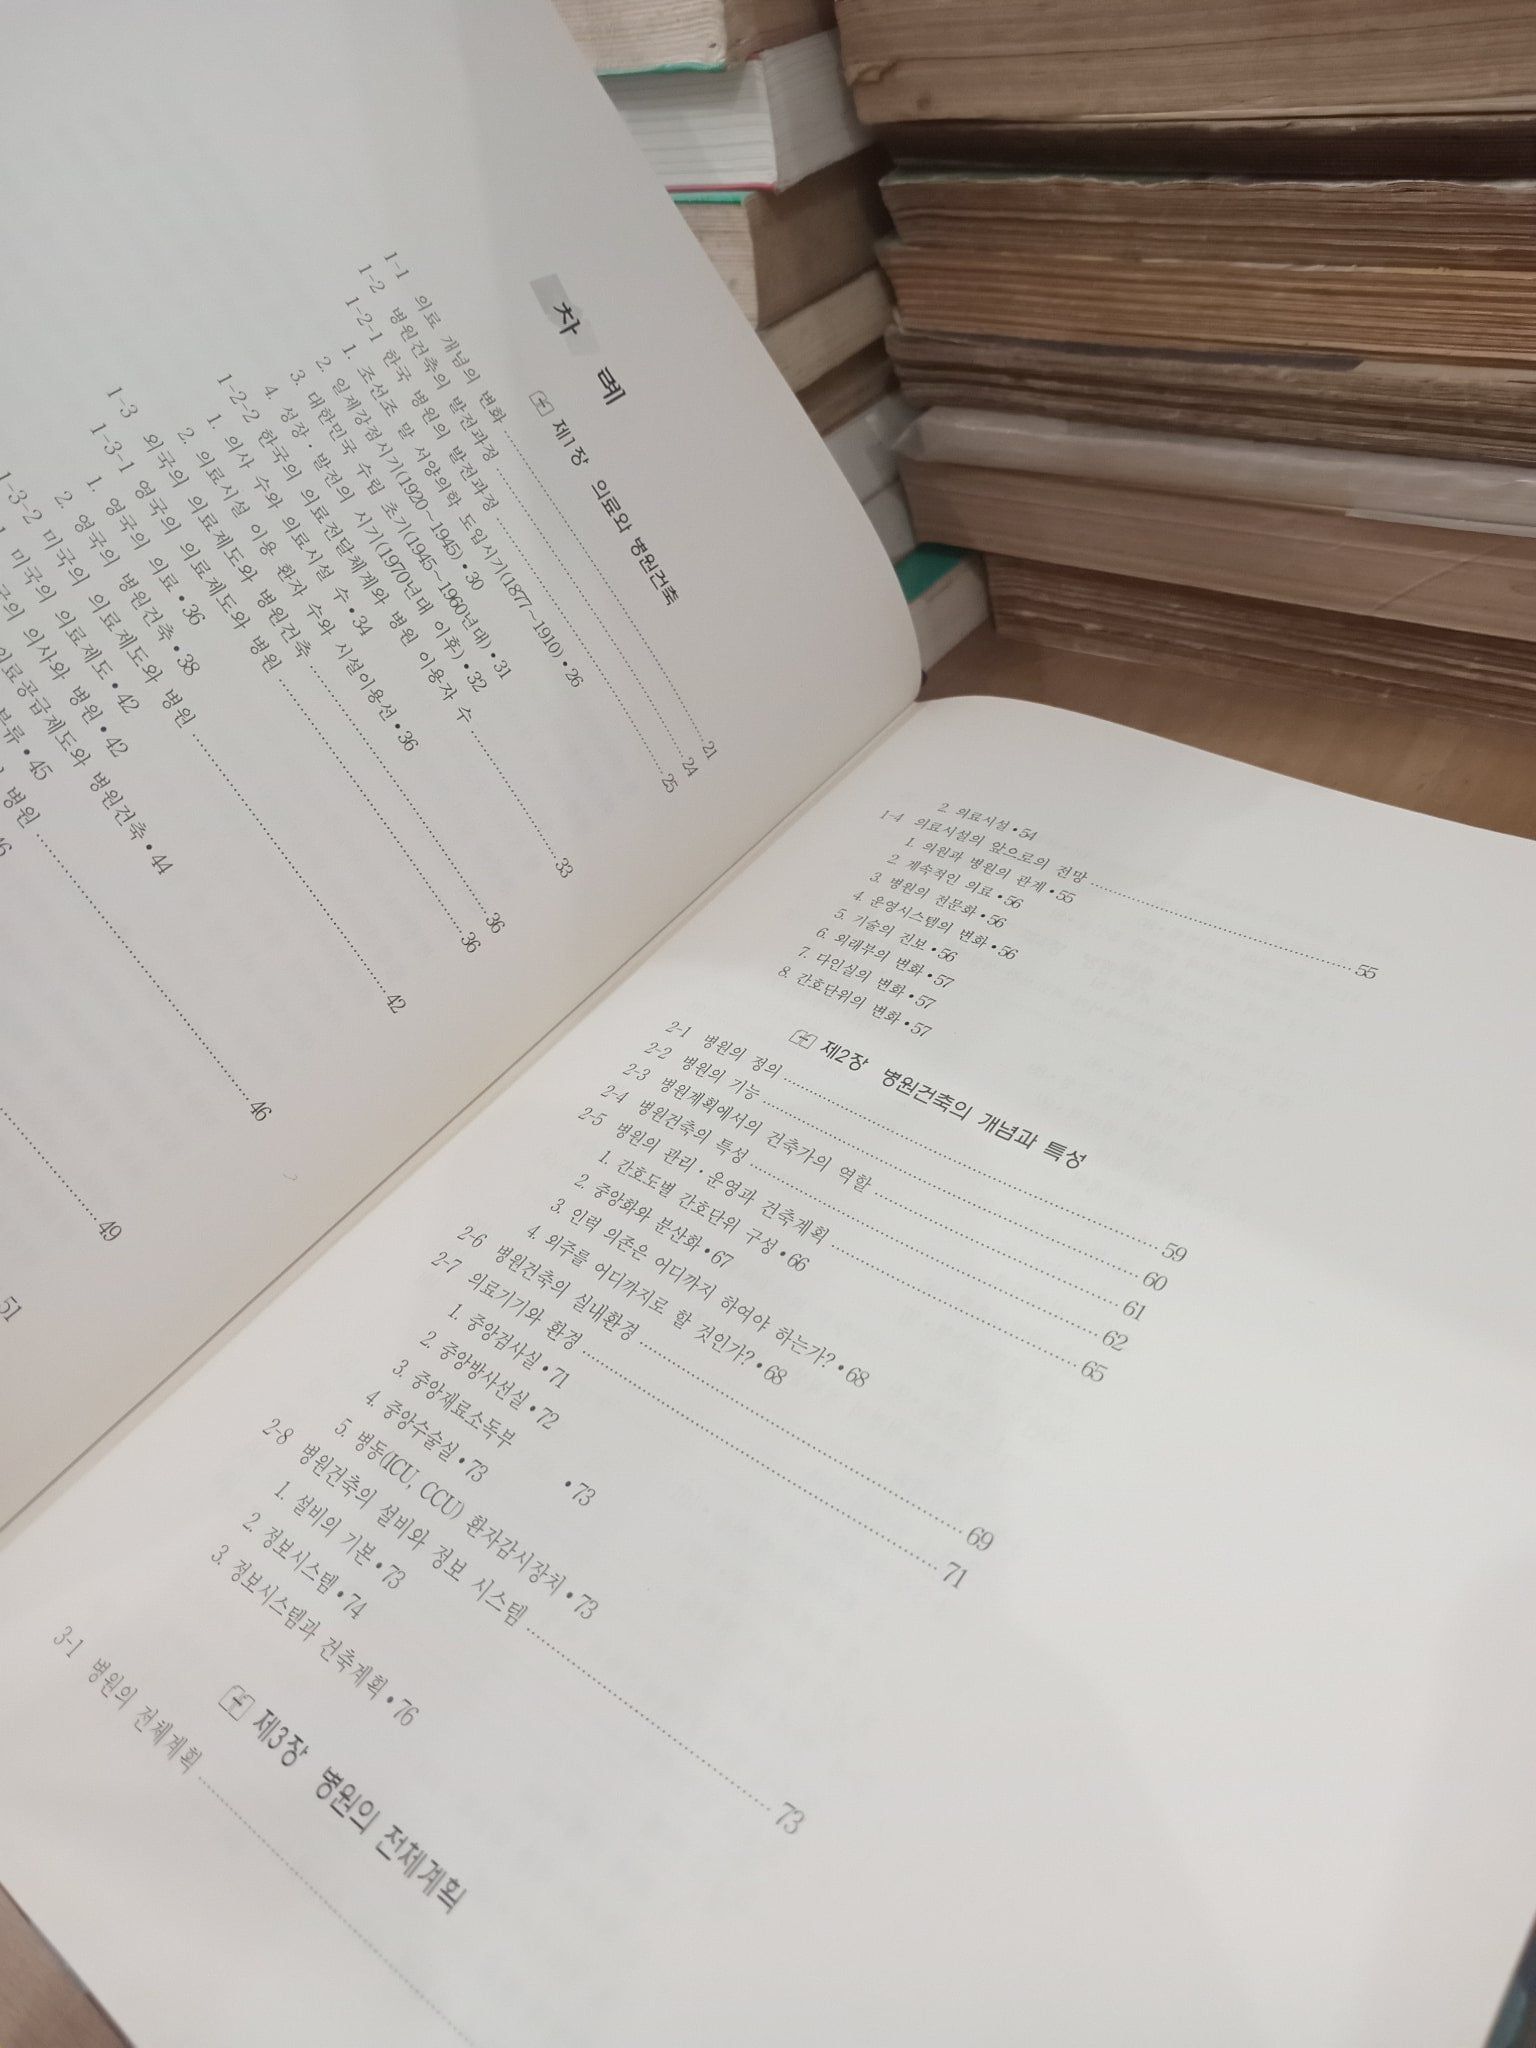 차 례
제1장 의료와 병원건축
1-1 의료 개념의 변화 21
1-2 병원건축의 발전과정 24
1-2-1 한국 병원의 발전과정 25
1. 조선조 말 서양의학 도입시기(1877~1910)•26
2. 일제강점시기(1920~1945)•30
3. 대한민국 수립 초기(1945~1960년대)•31
4. 성장·발전의 시기(1970년대 이후)•32
1-2-2 한국의 의료전달체계와 병원 이용자 수 33
1. 의사 수와 의료시설 수•34
2. 의료시설 이용 환자 수와 시설이용선•36
1-3 외국의 의료제도와 병원건축 36
1-3-1 영국의 의료제도와 병원 36
1. 영국의 의료•36
2. 영국의 병원건축•38
1-3-2 미국의 의료제도와 병원 42
미국의 의료제도•42
의사와 병원•42
의료공급제도와 병원건축•44
분류•45
병원 46
49
51
2. 의료시설•54
1-4 의료시설의 앞으로의 전망 55
1. 의원과 병원의 관계•55
2. 계속적인 의료•56
3. 병원의 전문화•56
4. 운영시스템의 변화•56
5. 기술의 진보•56
6. 외래부의 변화•57
7. 다인실의 변화•57
8. 간호단위의 변화•57
제2장 병원건축의 개념과 특성
2-1 병원의 정의 59
2-2 병원의 기능 60
2-3 병원계획에서의 건축가의 역할 61
2-4 병원건축의 특성 62
2-5 병원의 관리·운영과 건축계획 65
1. 간호도별 간호단위 구성•66
2. 중앙화와 분산화•67
3. 인력 의존은 어디까지 하여야 하는가?•68
4. 외주를 어디까지로 할 것인가?•68
2-6 병원건축의 실내환경 69
2-7 의료기기와 환경 71
1. 중앙검사실•71
2. 중앙방사선실•72
3. 중앙재료소독부 •73
4. 중앙수술실•73
5. 병동(ICU, CCU) 환자감시장치•73
2-8 병원건축의 설비와 정보 시스템 73
1. 설비의 기본•73
2. 정보시스템•74
3. 정보시스템과 건축계획•76
제3장 병원의 전체계획
3-1 병원의 전체계획